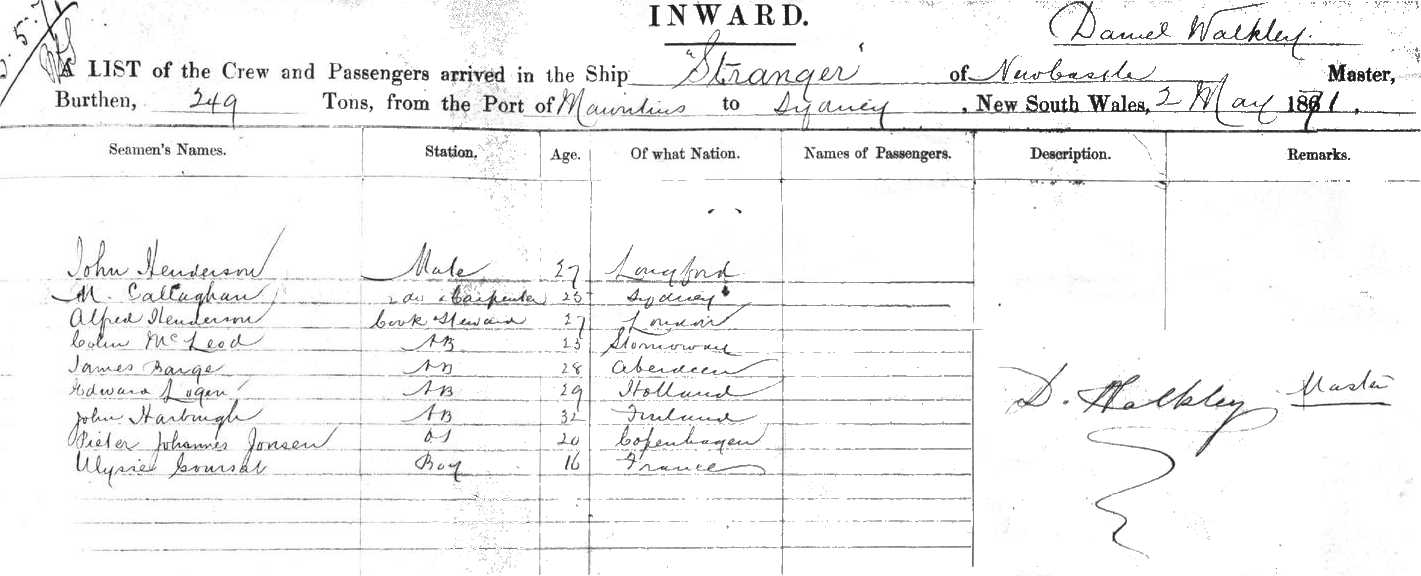 INWARD.
Daniel Walkley.
A LIST of the Crew and Passengers arrived in the Ship "Stranger" of Newcastle Master,
Burthen, 249 Tons, from the Port of Mauritius to Sydney, New South Wales, 2 May 1871.
Seamen's Names. Station. Age. Of what Nation. Names of Passengers. Description. Remarks.
John Henderson Mate 27 Longford
M. Callaghan Carpenter 25 Sydney
Alfred Henderson Cook Steward 27 London
Colin McLeod AB 23 Stornoway
James Barge AB 28 Aberdeen
Edward Logen AB 29 Holland
John Harbingh AB 32 Finland
Pieter Johannes Jonsen OS 20 Copenhagen
Ulysie Coursat Boy 16 France
D. Walkley Master